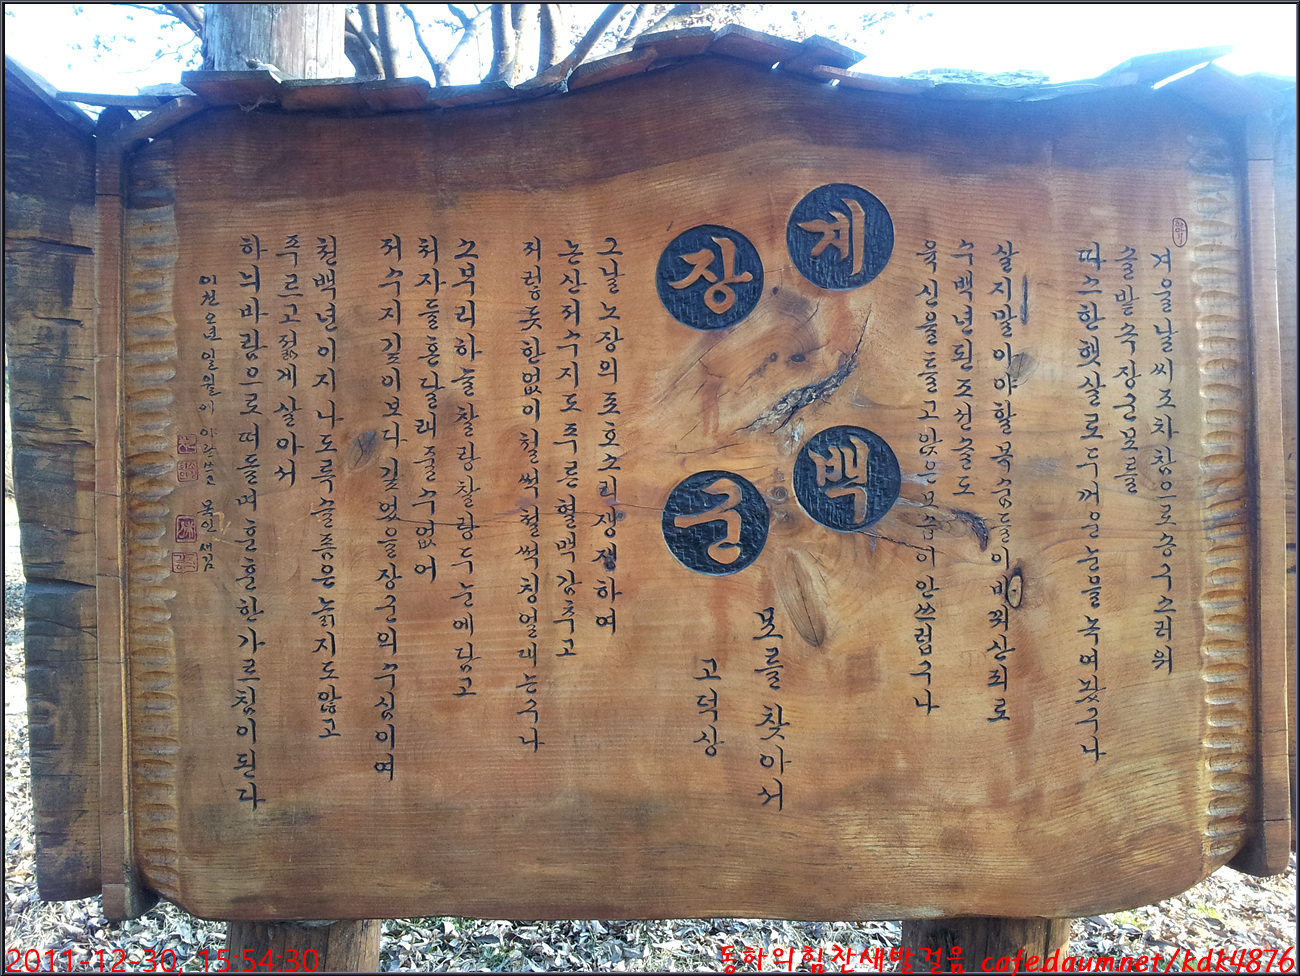 겨울날씨조차참으로송구스러워
솔밭속장군묘를
따스한햇살로두꺼운눈물녹여놨구나
살지말아야할목숨들이바꿔산죄로
수백년된조선솔도
육신을틀고앉은모습이안쓰럽구나
계백
장군
묘를 찾아서
고덕상
그날노장의포호소리생생하여
논산저수지도푸른혈맥감추고
저렇듯한없이철썩철썩칭얼대는구나
소부리하늘찰랑찰랑두눈에담고
처자들혼달래줄수없어
저수지깊이보다깊었을장군의수심이여
천백년이지나도록슬픔은늙지도않고
푸르고젊게살아서
하늬바람으로떠돌며훈훈한가르침이된다
이천오년일월 목인새김
2011-12-30, 15:54:30
동학의힘찬새발걸음 cafe.daum.net/kdk4876